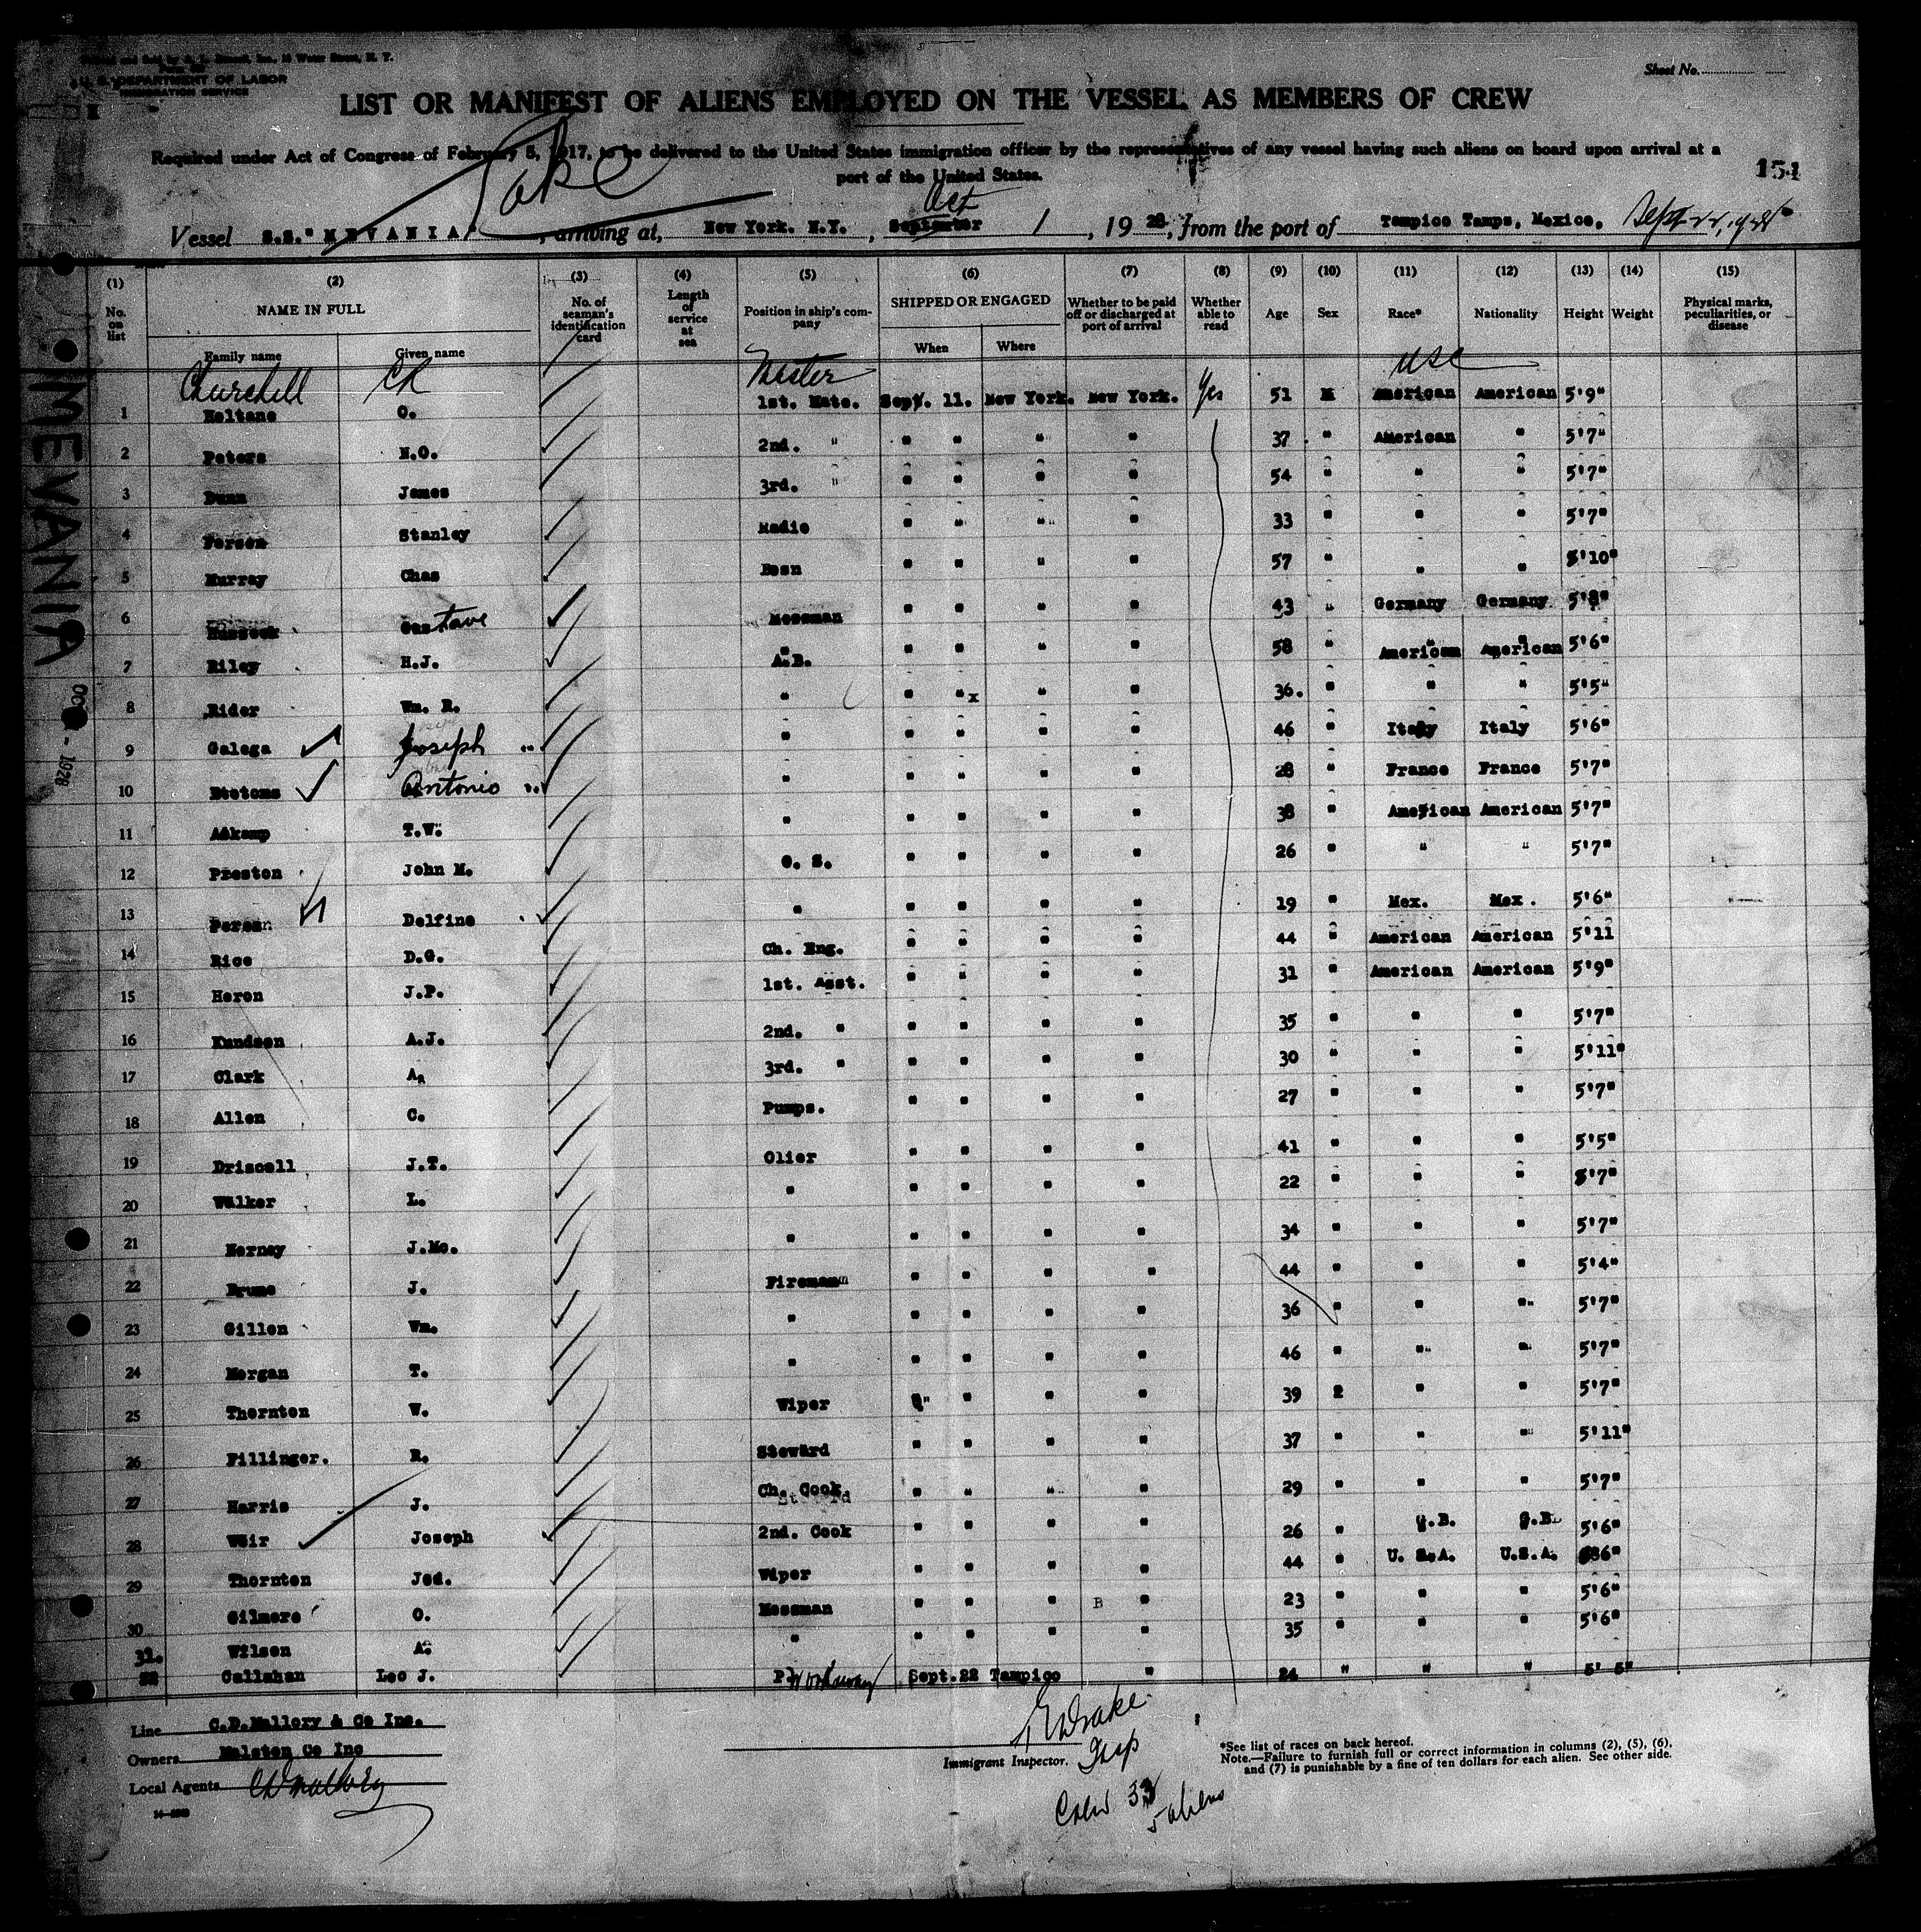 U. S. DEPARTMENT OF LABOR
IMMIGRATION SERVICE
Sheet No.
LIST OR MANIFEST OF ALIENS EMPLOYED ON THE VESSEL AS MEMBERS OF CREW
Required under Act of Congress of February 5, 1917, to be delivered to the United States immigration officer by the representatives of any vessel having such aliens on board upon arrival at a
port of the United States.
154
Vessel S.S." MEVANIA" , arriving at, New York. N.Y. , September Oct 1 , 19 28, from the port of Tampico Tamps, Mexico, Sept 22, 1928
(1) (2) (3) (4) (5) (6) (7) (8) (9) (10) (11) (12) (13) (14) (15)
No. on list NAME IN FULL Family name Given name No. of seaman's identification card Length of service at sea Position in ship's company SHIPPED OR ENGAGED When Where Whether to be paid off or discharged at port of arrival Whether able to read Age Sex Race* Nationality Height Weight Physical marks, peculiarities, or disease
Churchill CR Master USC
1 Holtane O. 1st. Mate. Sept. 11. New York. New York. Yes 51 M American American 5'9"
2 Peters N.O. 2nd. " " " " " 37 " American " 5'7"
3 Dunn James 3rd. " " " " " 54 " " " 5'7"
4 Stanley Radio " " " " 33 " " " 5'7"
5 Murray Chas Bosn " " " " 57 " " " 5'10"
6 Gustave Messman " " " " 43 " Germany Germany 5'8"
7 Riley H.J. A.B. 58 " American American 5'6"
8 Rider Wm. R. " " " " " 36. " " " 5'5"
9 Galega Joseph " " " " " 46 " Italy Italy 5'6"
10 Antonio " " " " " 28 " France France 5'7"
11 T.W. " " " " " 38 " American American 5'7"
12 Preston John M. O. S. " " " " 26 " " " 5'7"
13 Delfino " " " " " 19 " Mex. Mex. 5'6"
14 Rice D.G. Ch. Eng. " " " " 44 " American American 5'11
15 Heron J.P. 1st. Asst. " " " " 31 " American American 5'9"
16 Kundsen A.J. 2nd. " " " " " 35 " " " 5'7"
17 Clark A. 3rd. " " " " " 30 " " " 5'11"
18 Allen C. Pumps. " " " " 27 " " " 5'7"
19 Driscoll J.T. Olier " " " " 41 " " " 5'5"
20 Walker L. " " " " " 22 " " " 5'7"
21 J.Mc. " " " " " 34 " " " 5'7"
22 Brune J. Fireman " " " " 44 " " 5'4"
23 Gillen Wm. " " " " " 36 " " " 5'7"
24 Morgan T. " " " " " 46 " " 5'7"
25 Thornton W. Wiper " " " " 39 2 " " 5'7"
26 Fillinger. R. Steward " " " " 37 " " " 5'11"
27 Harris J. Ch. Cook " " " " 29 " " " 5'7"
28 Weir Joseph 2nd. Cook " " " " 26 " G.B. G.B. 5'6"
29 Thornton Jed. Wiper " " " " 44 " U. S.A. U.S.A. 5'6"
30 Gilmore O. Messman " " " B " 23 " " " 5'6"
31. Wilson A. " " " " " 35 " " " 5'6"
32 Callahan Leo J. P. Workaway Sept.22 Tampico " 24 " " " 5' 5"
MEVANIA
OCT - 1928
Line C.D.Mallory & Co Inc.
Owners Malston Co Inc
Local Agents CD Mallory
Drake
Immigrant Inspector. Insp
Crew 33
5 aliens
*See list of races on back hereof.
Note.—Failure to furnish full or correct information in columns (2), (5), (6),
and (7) is punishable by a fine of ten dollars for each alien. See other side.